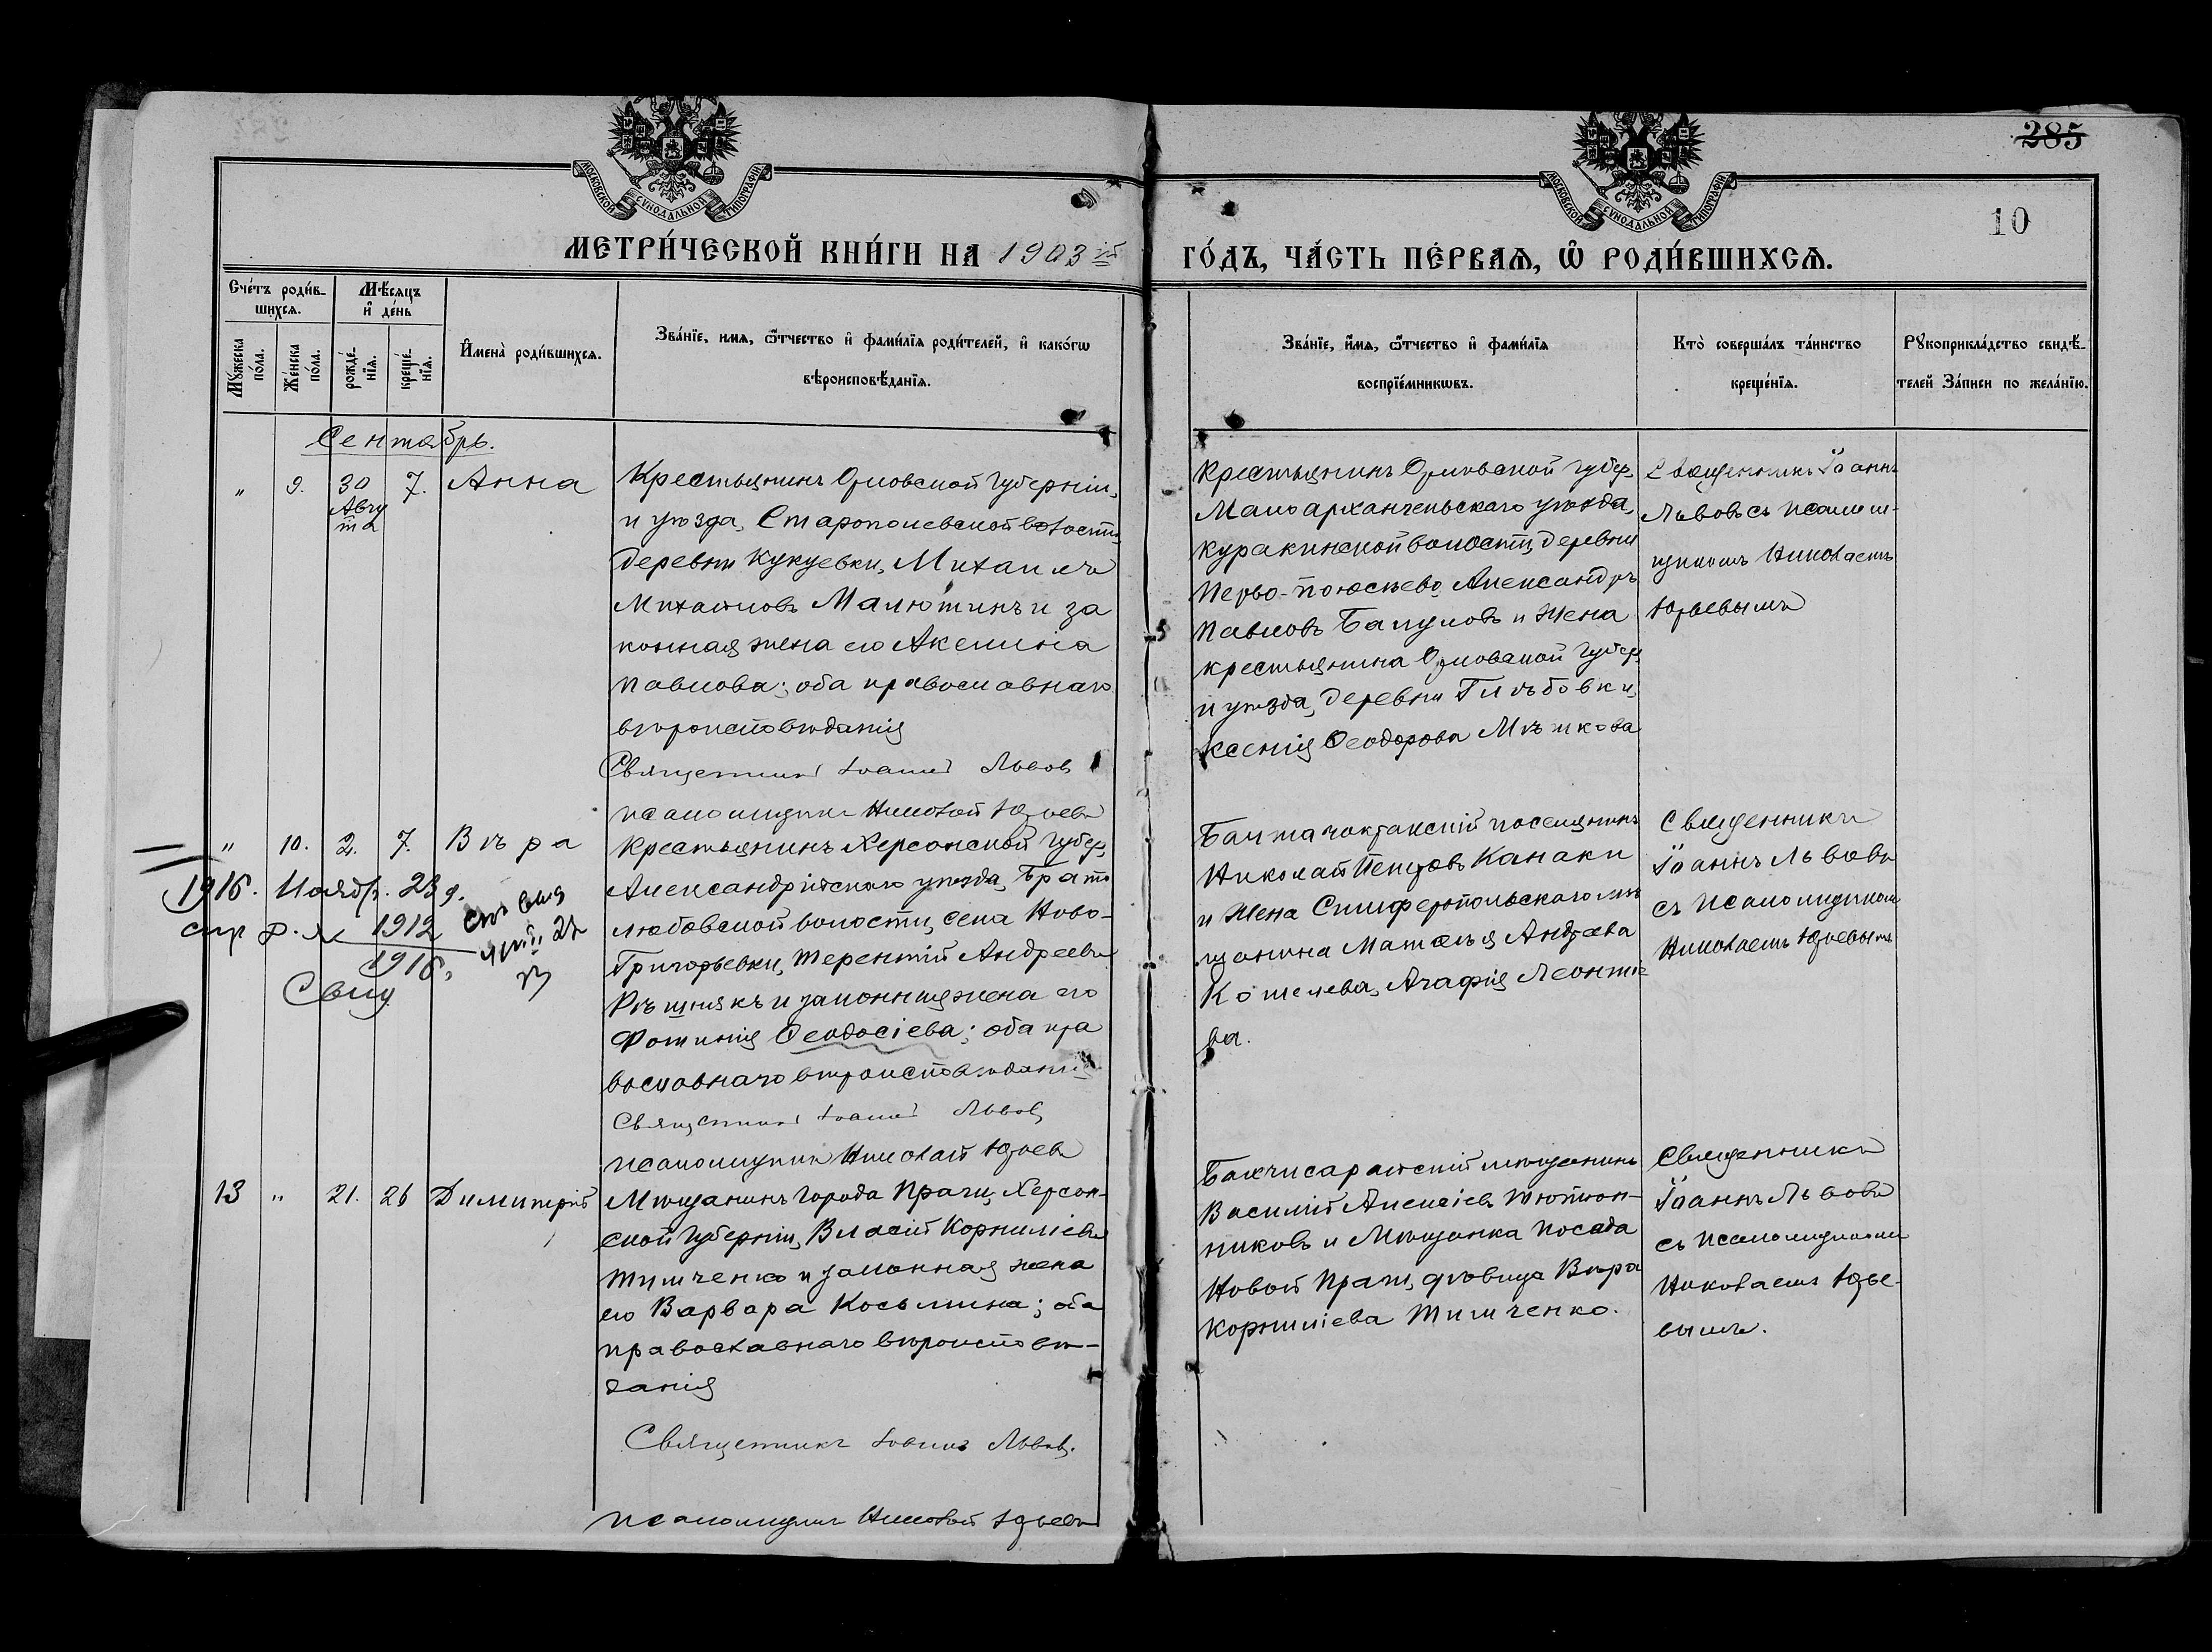 285
10
МОСКОВСКОЙ СѴНОДАЛЬНОЙ ТИПОГРАФІИ
МОСКОВСКОЙ СѴНОДАЛЬНОЙ ТИПОГРАФІИ
МЕТРИ́ЧЕСКОЙ КНИ́ГИ НА 1903 й
ГО́ДЪ, ЧА́СТЬ ПЕ́РВАѦ, Ѡ РОДИ́ВШИХСѦ.
Сче́тъ роди́в-
шихсѧ.
Мѣ́сѧцъ
и҆ де́нь
Му́жеска по́ла.
Же́нска по́ла.
рожде́-
нїѧ.
креще́-
нїѧ.
И҆мена̀ роди́вшихсѧ.
Зва́нїе, имѧ, ѻ҆́тчество и҆ фами́лїѧ роди́телей, и҆ како́гѡ
вѣроисповѣ́данїѧ.
Зва́нїе, и҆́мѧ, ѻ҆́тчество и҆ фами́лїѧ
воспрїе́мникѡвъ.
Кто̀ соверша́лъ та́инство
креще́нїѧ.
Рꙋкоприкла́дство свидѣ́-
телей за́писи по жела́нїю.
Сентябрь.
" 9. 30 7. Анна
Авгу
ста
Крестьянинъ Орловской губерніи,
и уѣзда, Старопольской волости
деревни Кукуевки, Михаилъ
Михаиловъ Малютинъ и за
конная жена его Акелина
Павлова; оба православнаго
вѣроисповѣданія
Священникъ Іоаннъ Львовъ
псаломщикъ Николай Юрьевъ
Крестьянинъ Орловской губер.
Малоархангельскаго уѣзда,
Куракинской волости, деревни
Перво- Александръ
Павловъ и жена
крестьянина Орловской губер.
и уѣзда, деревни Глѣбовки,
Ксенія Ѳеодорова
Священникъ Іоаннъ
Львовъ съ псалом-
щикомъ Николаемъ
Юрьевымъ
" 10. 2. 7. Вѣра
1916. Ноябр. 23 д.
1912
1916.
Крестьянинъ Херсонской губер,
Александрійскаго уѣзда, Брато
любовской волости, села Ново-
Григорьевки, Терентій Андреевъ
Рѣшнякъ и законная жена его
Фотинія Ѳеодосіева; оба пра
вославнаго вѣроисповѣданія
Священникъ Іоаннъ Львовъ
псаломщикъ Николай Юрьевъ
поселянинъ
Николай Петровъ Канаки
и жена Симферопольскаго мѣ
щанина Андреева
Кошелева, Агафія Леонтіе
ва.
Священникъ
Іоаннъ Львовъ
съ псаломщикомъ
Николаемъ Юрьевымъ
13 " 21. 26 Димитрій
Мѣщанинъ города Праги, Херсон-
ской губерніи, Власій Корниліевъ
Тимченко и законная жена
его Варвара Косьмина; оба
православнаго вѣроисповѣ-
данія
Священникъ Іоаннъ Львовъ.
псаломщикъ Николай Юрьевъ
Бахчисарайскій мѣщанинъ
Василій Алексіевъ Тютюн-
никовъ и мѣщанка посада
Новой Праги, дѣвица Вѣра
Корниліева Тимченко.
Священникъ
Іоаннъ Львовъ
съ псаломщикомъ
Николаемъ Юрье-
вымъ.